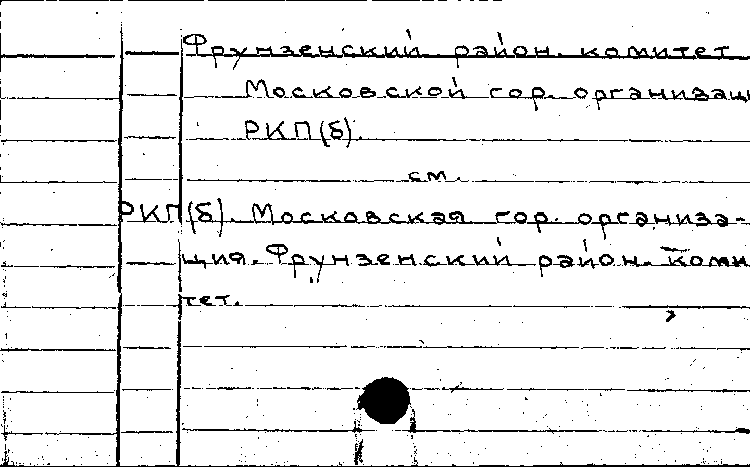 Фрунзенский район. комитет
Московской гор. организаци
РКП(б).
см.
РКП(б). Московская гор. организа-
ция. Фрунзенский район. коми
тет.